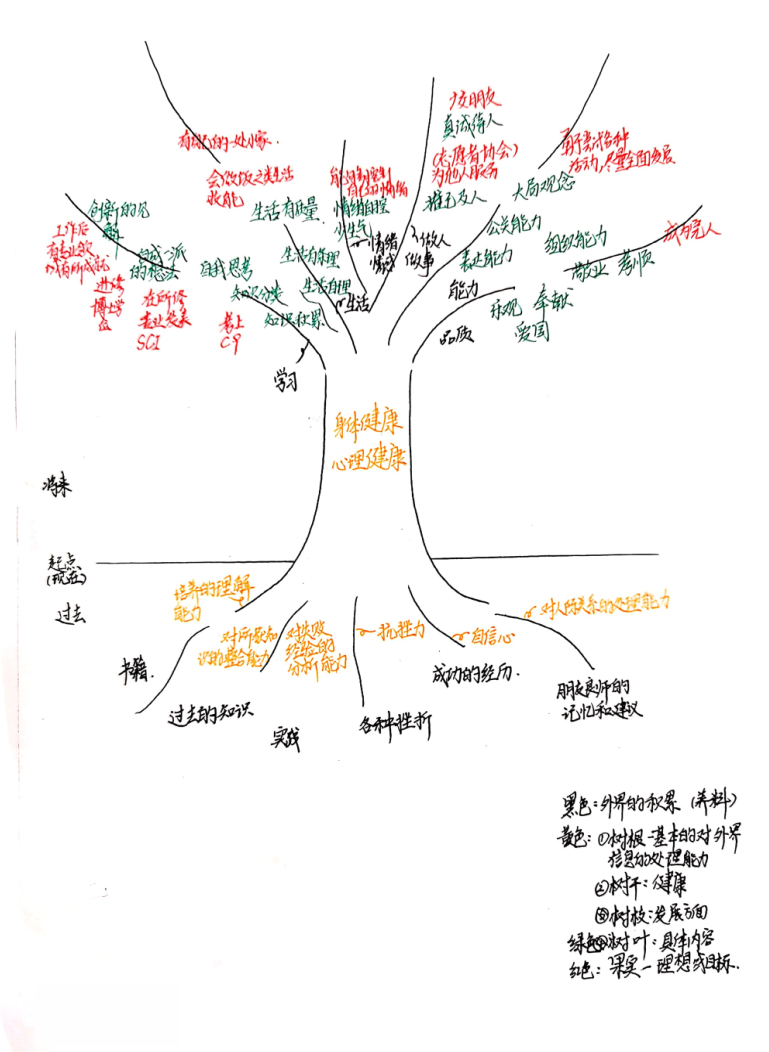 交朋友
真诚待人
(志愿者协会)
为他人服务
推己及人
有自己的一处小家.
会做饭之类生活
技能
生活有质量
生活有条理
生活自理
生活
能够控制
自己的情绪
情绪自控
少生气
情绪
做人
做事
勇于尝试各种
活动,尽量全面发展
大局观念
公关能力
组织能力
表达能力
能力
成为完人
敬业 孝顺
乐观 奉献
爱国
品质
创新的见
解
工作后
有专业领
域有所成就
自成一派
的想法
自我思考
进修
博士学
位
在所修
专业发表
SCI
知识分类
知识积累
考上
C9
学习
身体健康
心理健康
将来
起点
(现在)
过去
培养的理解
能力
对所获知
识的整合能力
对失败
经验的
分析能力
抗挫力
自信心
对人际关系的处理能力
书籍.
过去的知识
实践
各种挫折
成功的经历.
朋友良师的
记忆和建议
黑色:外界的积累 (养料)
黄色:①树根-基本的对外界
信息的处理能力
②树干:健康
③树枝:发展方面
绿色④树叶:具体内容
红色:果实-理想或目标.